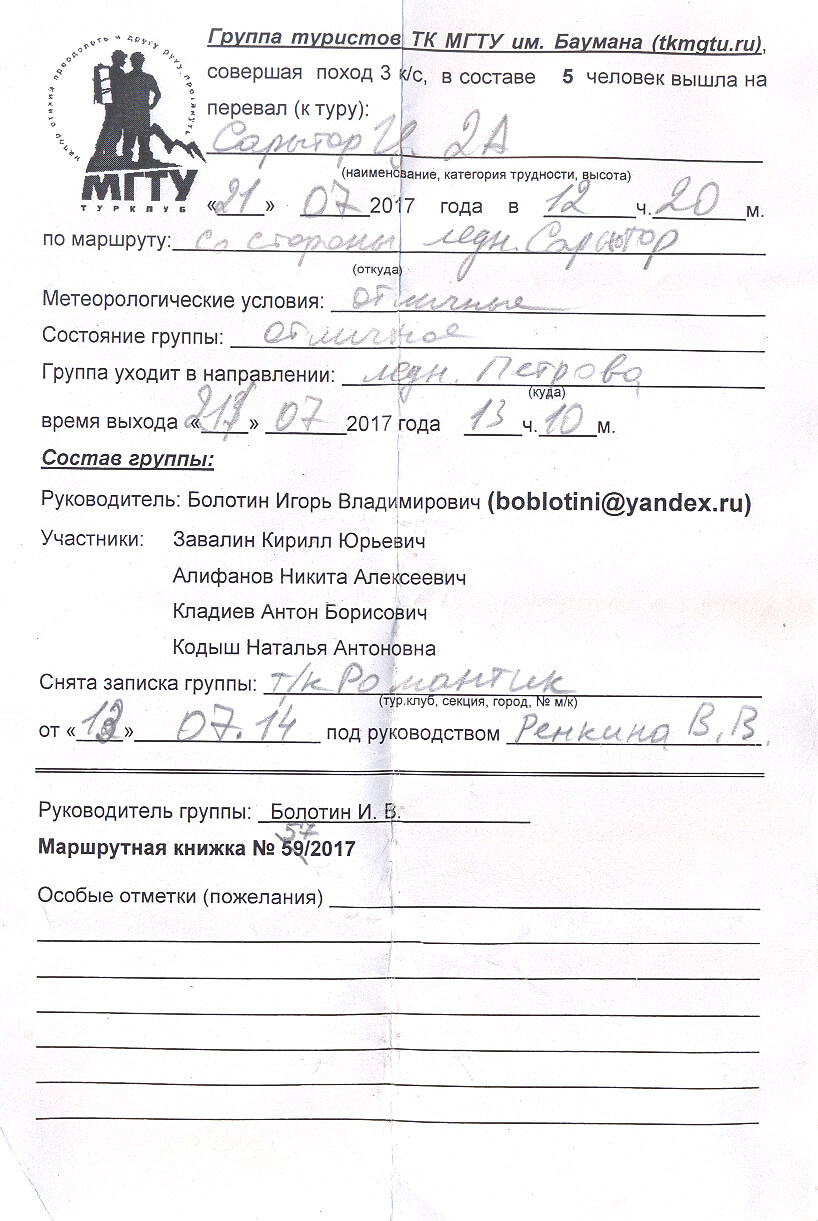 напор стихий преодолеть и другу руку протянуть
МГТУ
ТУРКЛУБ
Группа туристов ТК МГТУ им. Баумана (tkmgtu.ru),
совершая поход 3 к/с, в составе 5 человек вышла на
перевал (к туру):
Сарытор Ц. 2А
(наименование, категория трудности, высота)
«21» 07 2017 года в 12 ч. 20 м.
по маршруту: со стороны ледн. Сарытор
(откуда)
Метеорологические условия: отличные
Состояние группы: отличное
Группа уходит в направлении: ледн. Петрова
(куда)
время выхода «21» 07 2017 года 13 ч. 10 м.
Состав группы:
Руководитель: Болотин Игорь Владимирович (boblotini@yandex.ru)
Участники: Завалин Кирилл Юрьевич
Алифанов Никита Алексеевич
Кладиев Антон Борисович
Кодыш Наталья Антоновна
Снята записка группы: т/к Романтик
(тур.клуб, секция, город, № м/к)
от « » 07.14 под руководством Ренкина В.В.
Руководитель группы: Болотин И. В.
57
Маршрутная книжка № 59/2017
Особые отметки (пожелания)